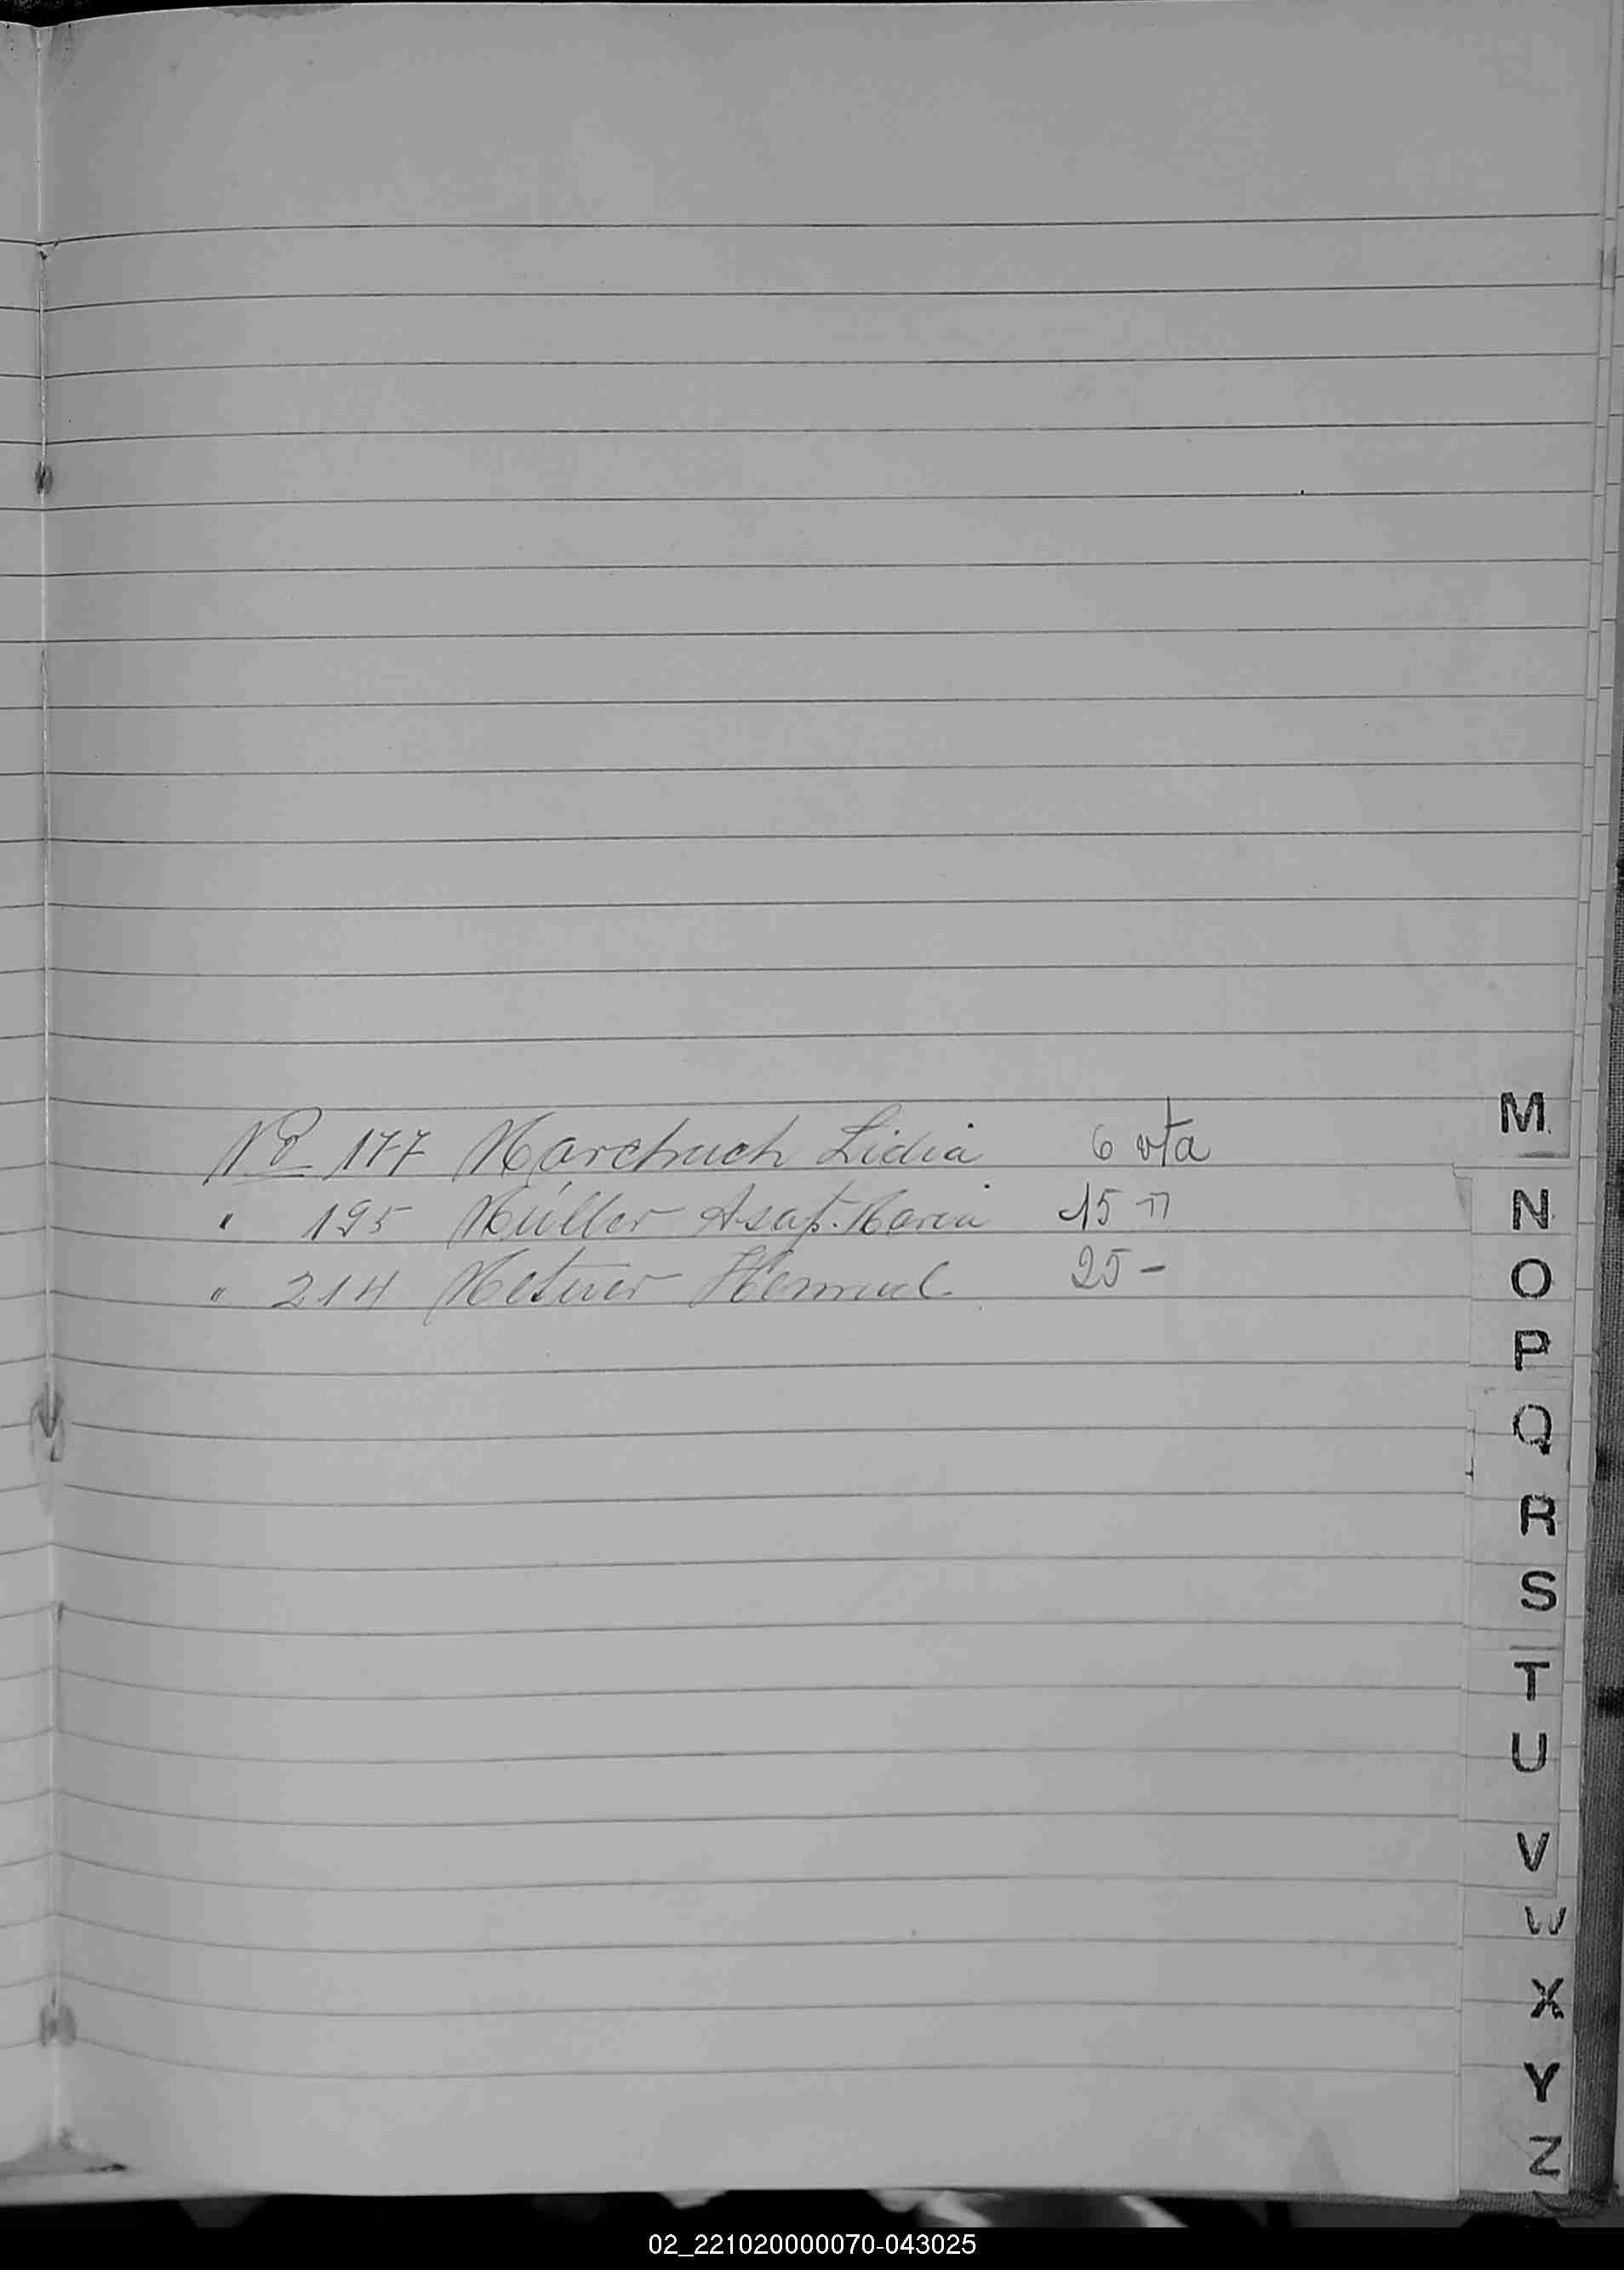 No 177 Marchuch Lidia 6 vta
" 195 Müller Asaf. Maria 15 "
" 214 Metner 25 -
M
N
O
P
Q
R
S
T
U
V
W
X
Y
Z
02_221020000070-043025